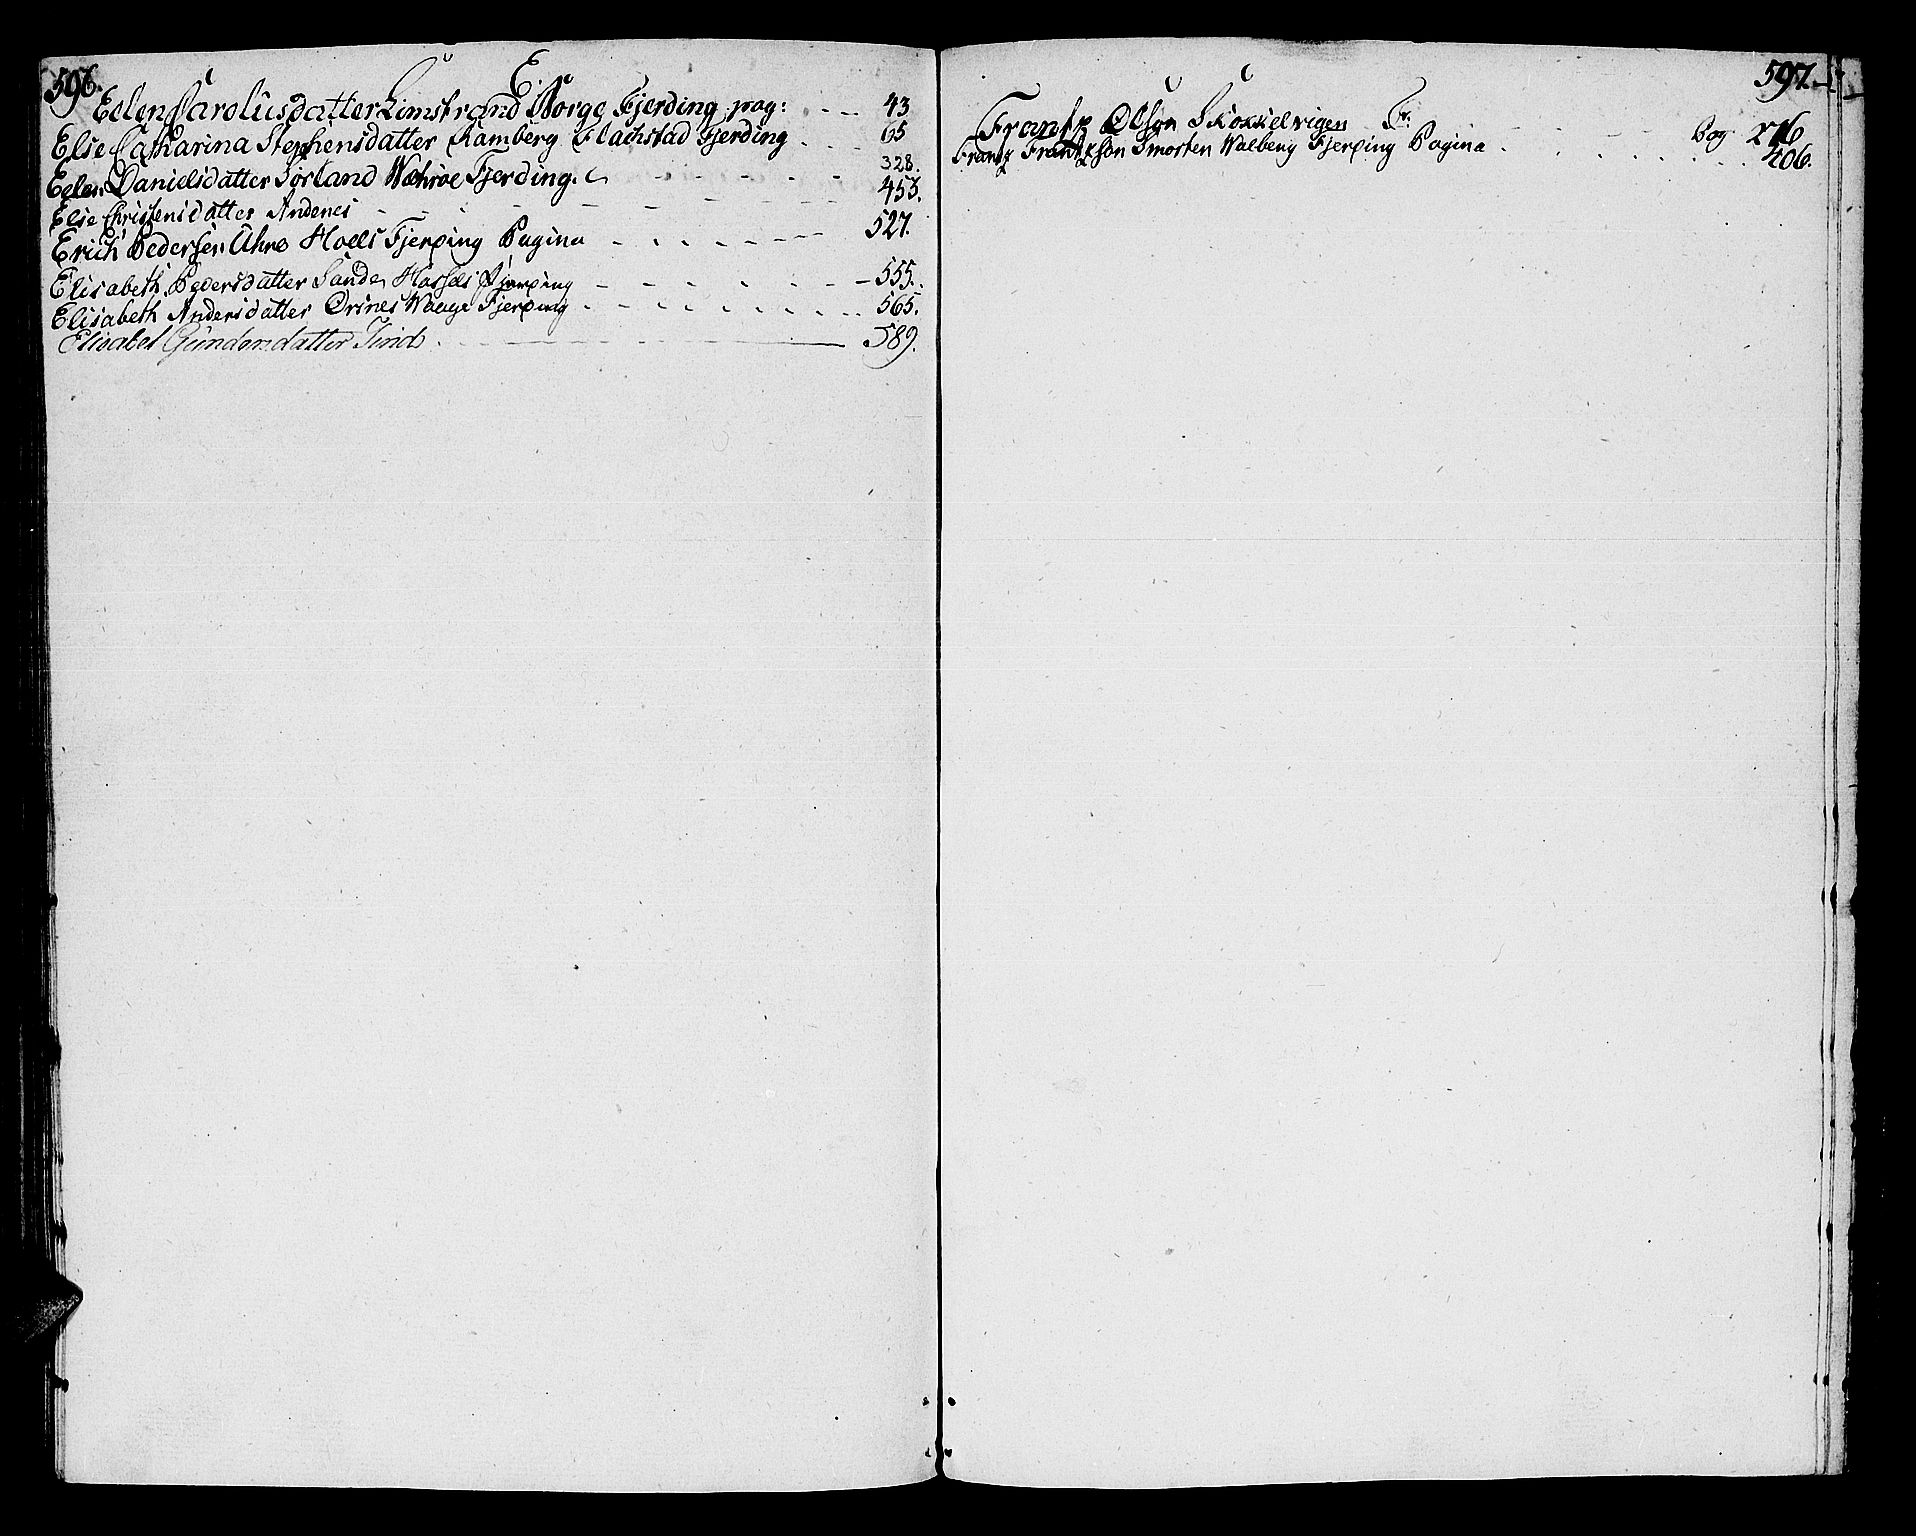 596.
E.
Eelen Carolusdatter Limstrand Borge Fjerding pag: 43
Else Catharina Stephensdatter Ramberg Flachstad Fjerding 65
Eelen Danielsdatter Sørland Wæhrøe Fjerding. 328.
Else Christensdatter Andenes 453.
Erich Pedersen Åhne Hoels Fjerping Pagina 527.
Elisabeth Pedersdatter Sanden Hassels Fjerping 555.
Elisabeth Andersdatter Ørsnes Waage Fjerping 565.
Elisabet Gundersdatter Tind 589.
597.
F.
Frantz Olsøn Skokkelvigen Pag 276
Frantz Frantzsøn Smorten Walberg Fjerping Pagina 406.